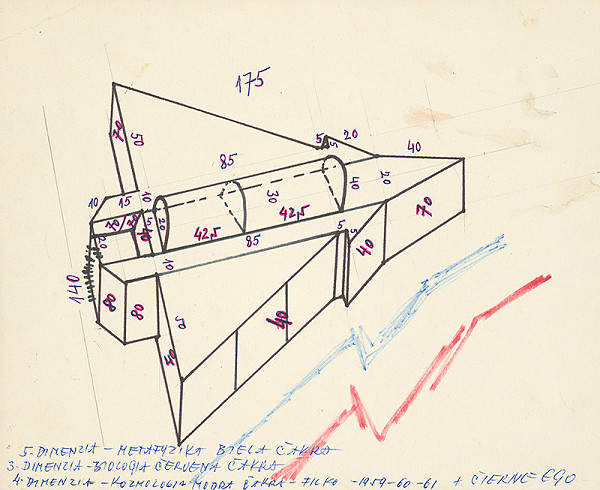 175
5 5 20
40
70
50
85
20
10 15 10
30
40
20
70
70 70
5
40
20
42,5
42,5
85
5 5
40
70
20
140
10
80
80
50
40
40
5. DIMENZIA - METAFYZIKA BIELA ČAKRA
3. DIMENZIA - BIOLOGIA ČERVENA ČAKRA
4. DIMENZIA - KOZMOLOGIA MODRA ČAKRA - FILKO - 1959-60-61 + ČIERNE EGO